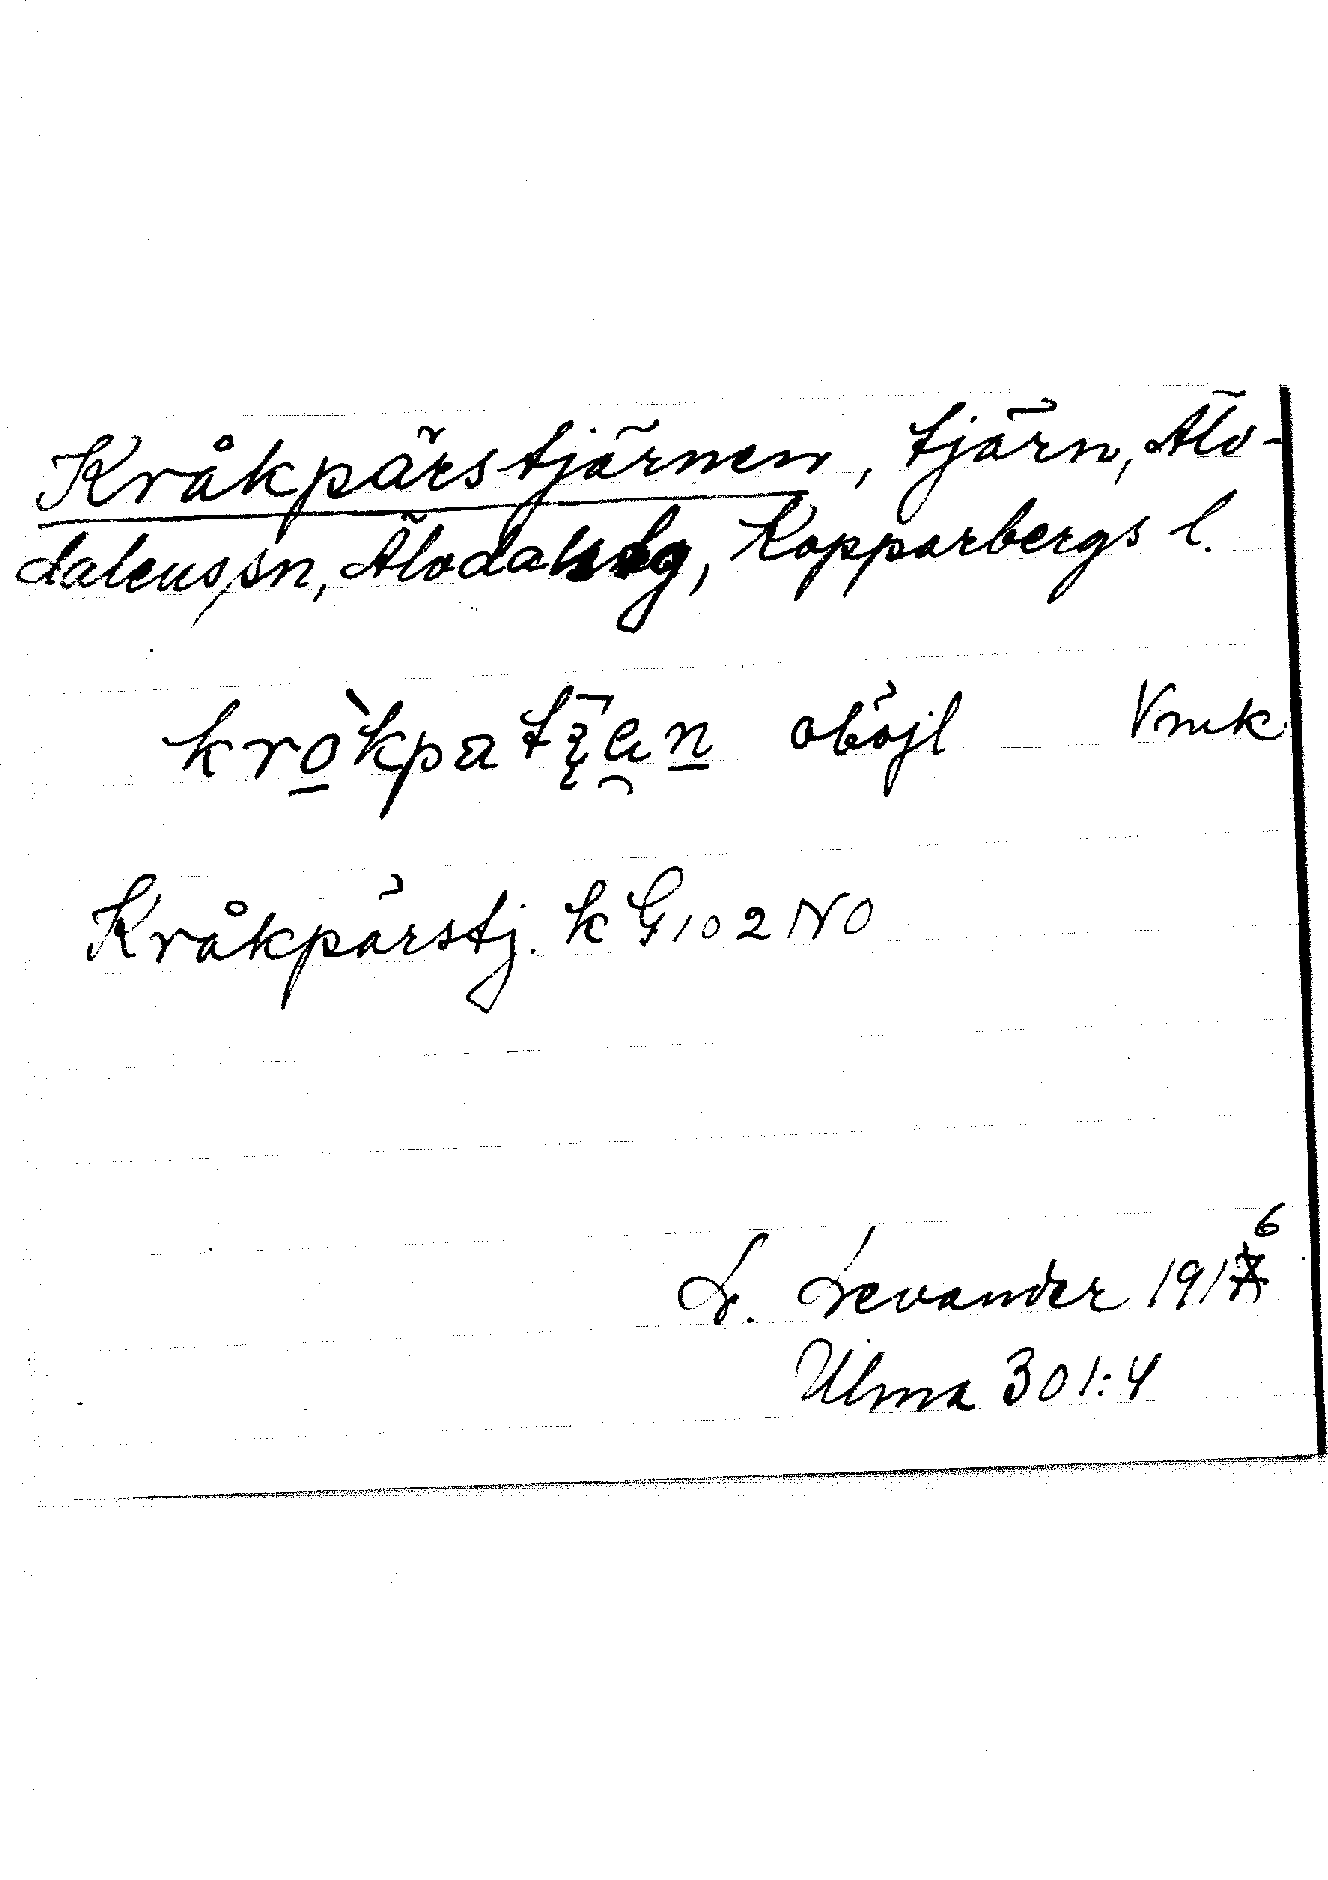 Kråkpärstjärnen, tjärn, Älv-
dalens sn, Älvdals tg, Kopparbergs l.
oböjl Vmk
Kråkpärstj. k G 102 NO
L. Levander 1916
Ulma 301:4